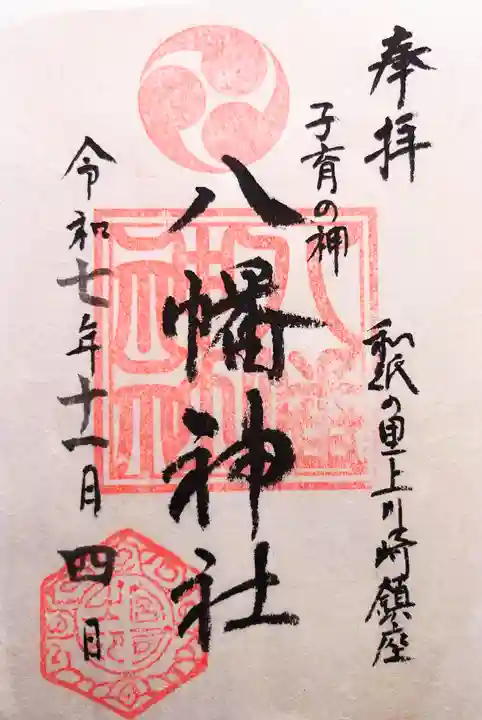 奉拝
和紙の里上川崎鎮座
子育の神
八幡神社
令和七年十一月四日